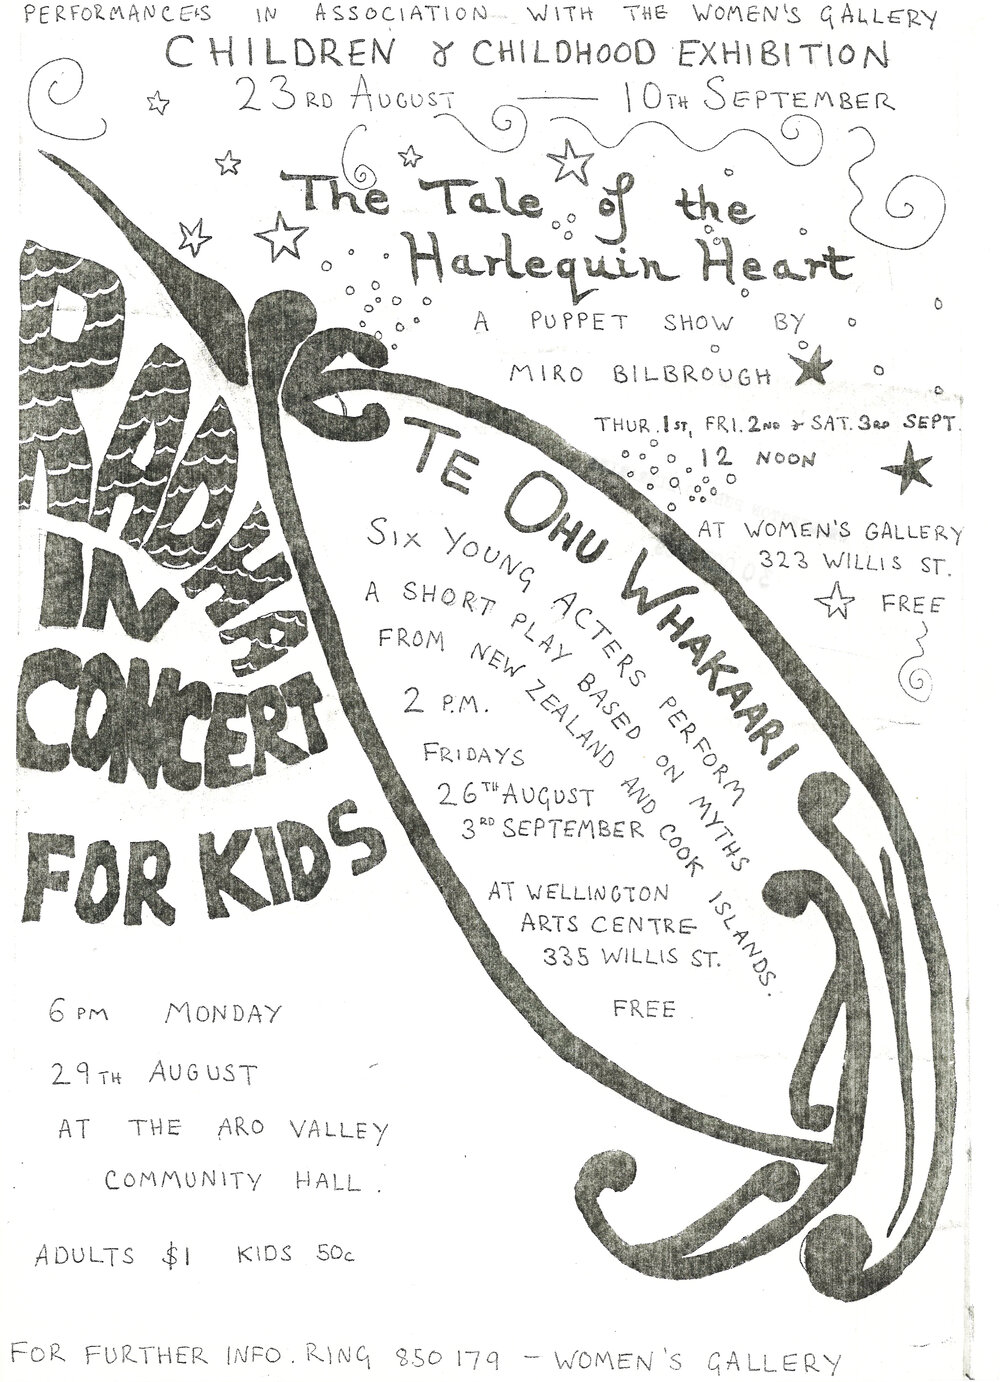 PERFORMANCES IN ASSOCIATION WITH THE WOMEN'S GALLERY
CHILDREN & CHILDHOOD EXHIBITION
23RD AUGUST — 10TH SEPTEMBER
The Tale of the
Harlequin Heart
A PUPPET SHOW BY
MIRO BILBROUGH
THUR. 1ST, FRI. 2ND & SAT. 3RD SEPT.
12 NOON
AT WOMEN'S GALLERY
323 WILLIS ST.
FREE
TE OHU WHAKAARI
SIX YOUNG ACTERS PERFORM
A SHORT PLAY BASED ON MYTHS
FROM NEW ZEALAND AND COOK ISLANDS.
2 P.M.
FRIDAYS
26TH AUGUST
3RD SEPTEMBER
AT WELLINGTON
ARTS CENTRE
335 WILLIS ST.
FREE.
RADHA
IN
CONCERT
FOR KIDS
6 PM MONDAY
29TH AUGUST
AT THE ARO VALLEY
COMMUNITY HALL.
ADULTS $1 KIDS 50c
FOR FURTHER INFO. RING 850 179 - WOMEN'S GALLERY